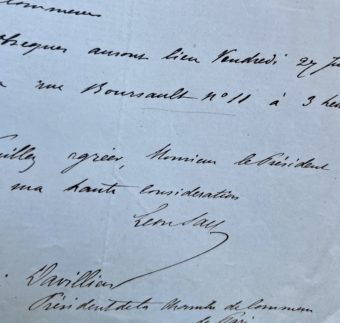 Commerce
obsèques auront lieu Vendredi 27
rue Boursault nº 11 à 3
agréer, Monsieur le Président
ma haute considération
Léon Say
Davillier
Président de la Chambre de Commerce
de Paris